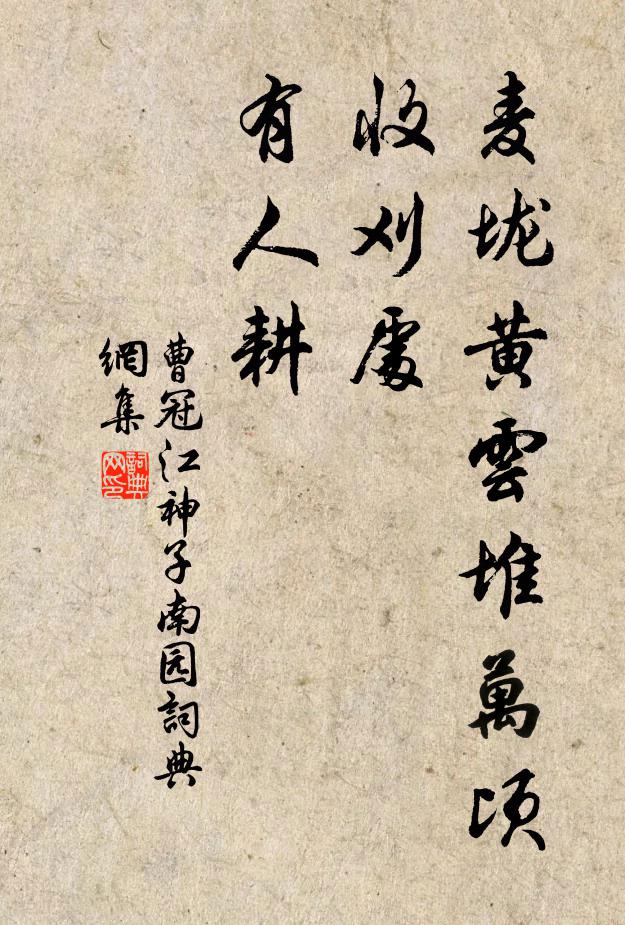 麦垅黄雲堆萬顷
收刈處
有人耕
曹冠江神子南园詞典
網集
詞典
网印